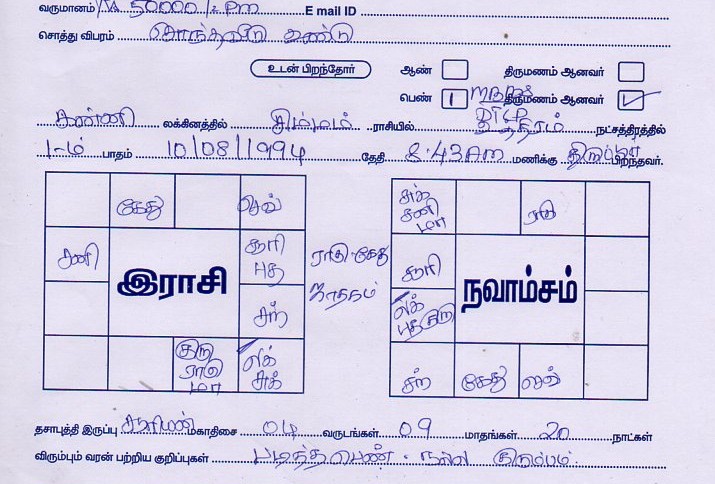 வருமானம் / 50000/- Pm E mail ID
சொத்து விபரம் சொந்தவீடு உண்டு
உடன் பிறந்தோர் ஆண் திருமணம் ஆனவர்
பெண் 1 திருமணம் ஆனவர் ✓
கன்னி லக்கினத்தில் சிம்மம் ராசியில் உத்திரம் நட்சத்திரத்தில்
1-ம் பாதம் 10/08/1994 தேதி 8:43 Am மணிக்கு பிறந்தவர்.
கேது செவ்
சனி சூரி புத
இராசி
சந்
குரு ராகு மா லக் சுக்
ராகு கேது ஜாதகம்
சுக் சனி மா ராகு
சூரி
நவாம்சம்
லக் புத குரு
சந் கேது செவ்
தசாபுத்தி இருப்பு சூரியன் மகாதிசை 04 வருடங்கள் 09 மாதங்கள் 20 நாட்கள்
விரும்பும் வரன் பற்றிய குறிப்புகள் படித்த பெண். நல்ல குடும்பம்